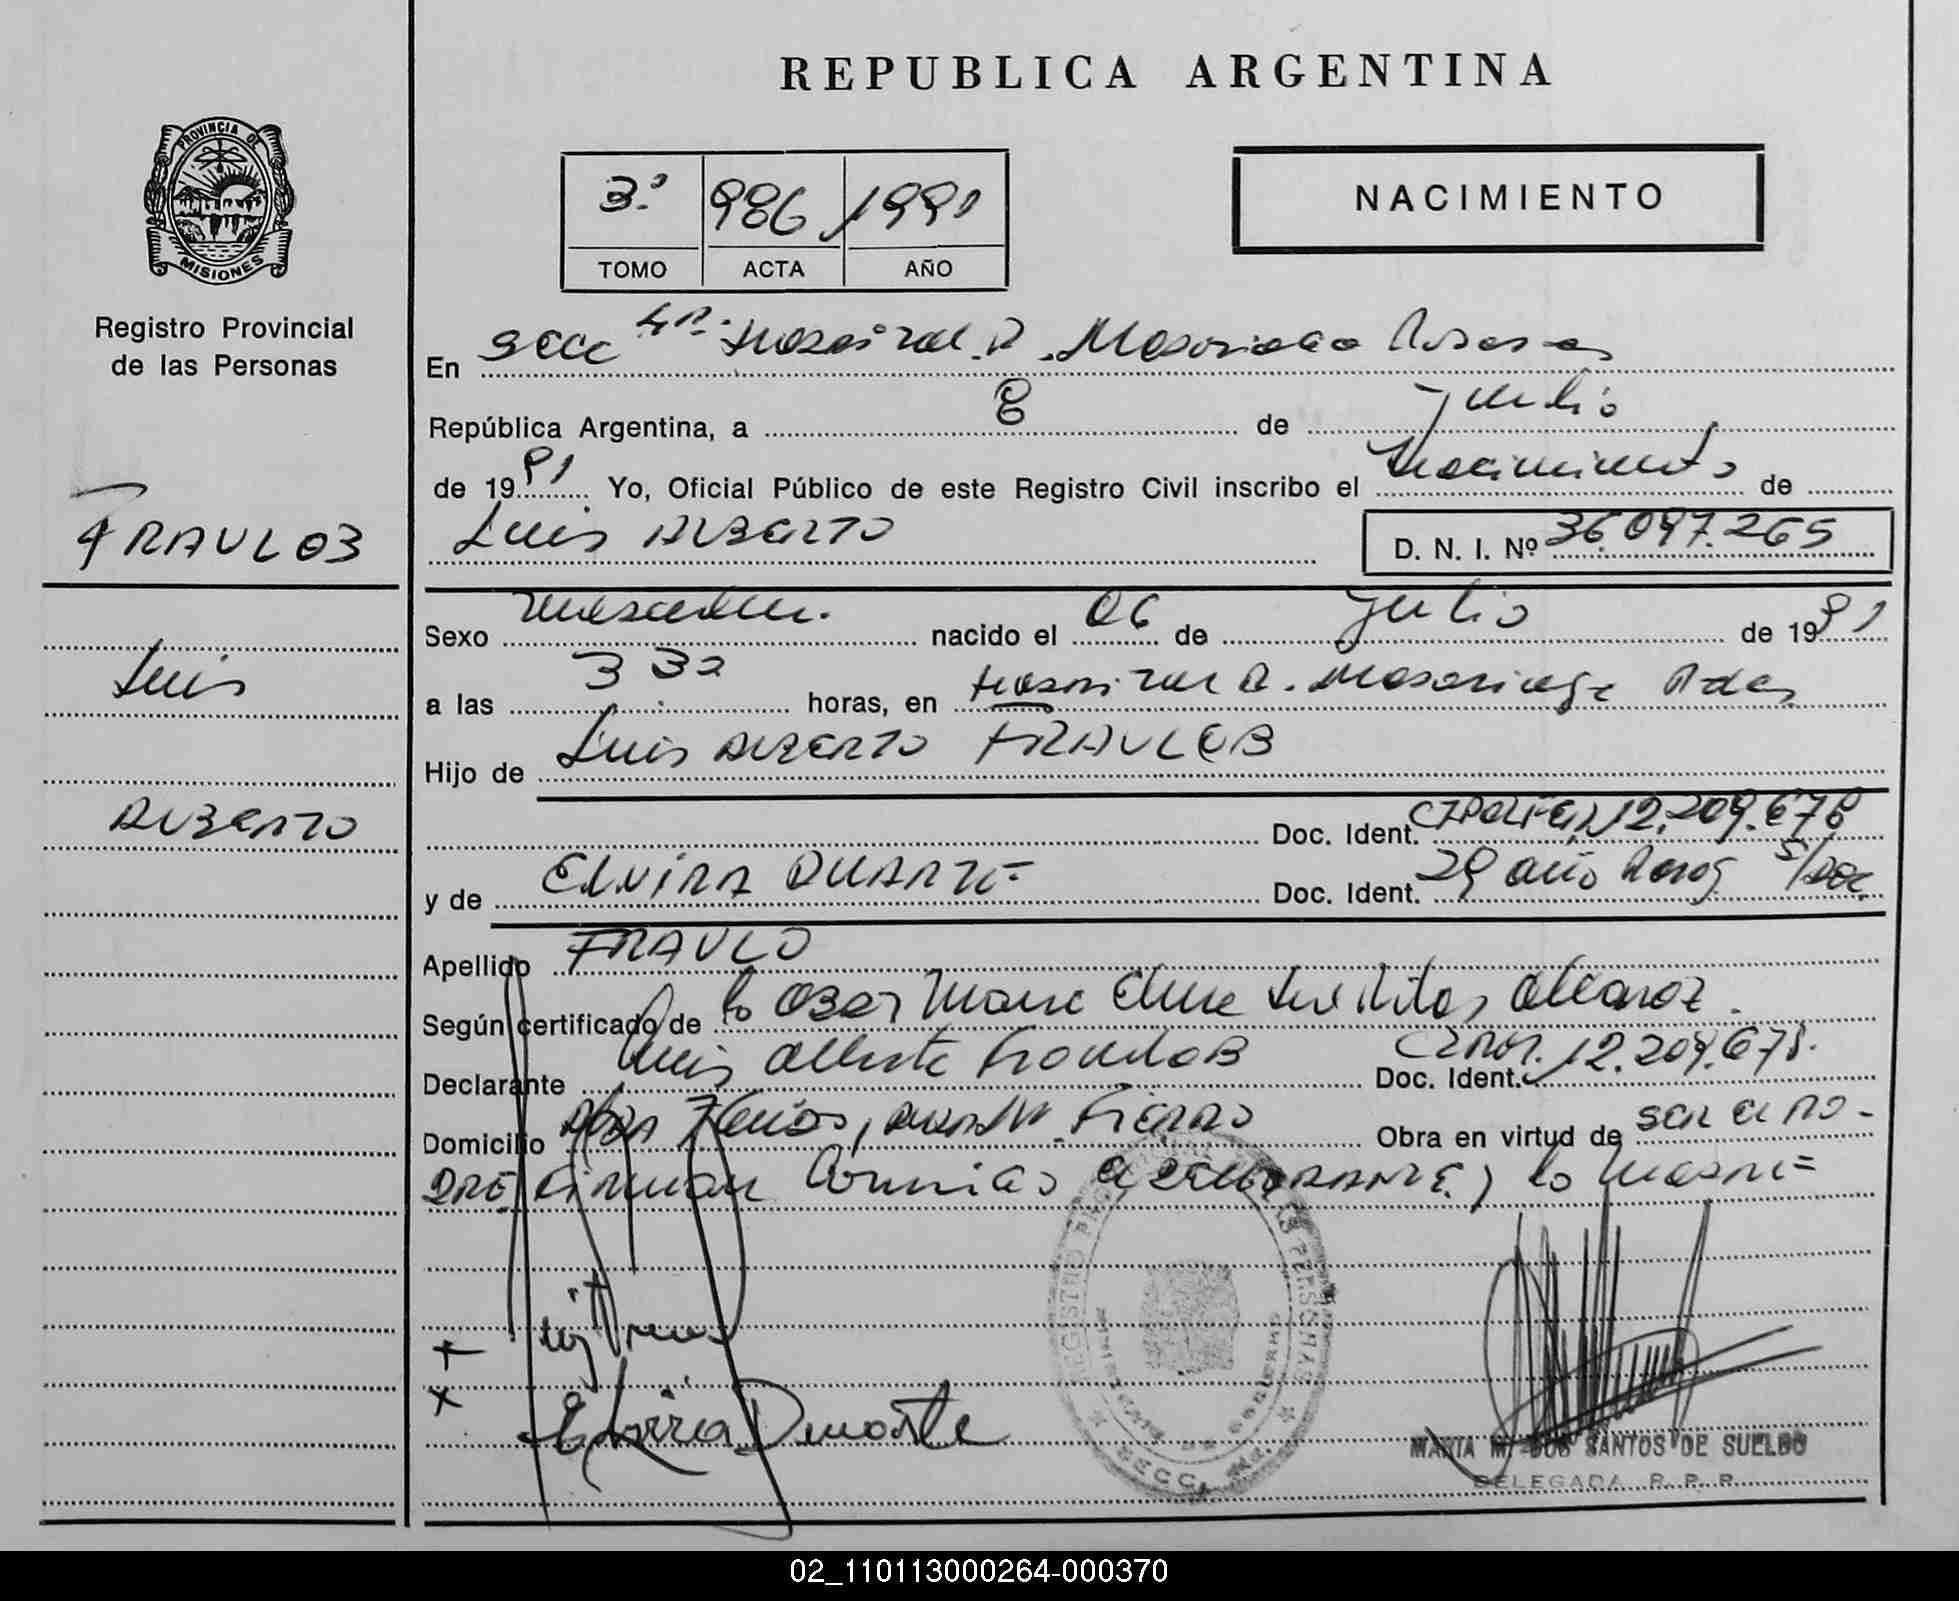 REPUBLICA ARGENTINA
PROVINCIA DE
MISIONES
Registro Provincial
de las Personas
3º 986 1991
TOMO ACTA AÑO
NACIMIENTO
En Secc 4ª Hospital R. Posadas
República Argentina, a 8 de Julio
de 1991 Yo, Oficial Público de este Registro Civil inscribo el Nacimiento de
Luis ALBERTO D. N. I. Nº 36.097.265
FRAULOB
Luis
ALBERTO
Sexo Masculin. nacido el 06 de Julio de 1991
a las 3 30 horas, en Hospital R. Pdas
Hijo de Luis ALBERTO FRAULOB
Doc. Ident. 12.209.678
y de ELVIRA DUARTE Doc. Ident. 29 años S/Doc.
Apellido FRAULO
Según certificado de la Obst
Declarante Luis Alberto Fraulob Doc. Ident. 12.209.678.
Domicilio Fierro Obra en virtud de ser el PA-
DRE Firman Conmigo el DECLARANTE y la MADRE=
Elvira Duarte
REGISTRO PROVINCIAL DE LAS PERSONAS
MARIA M. DOS SANTOS DE SUELDO
DELEGADA R. P. P.
02_110113000264-000370